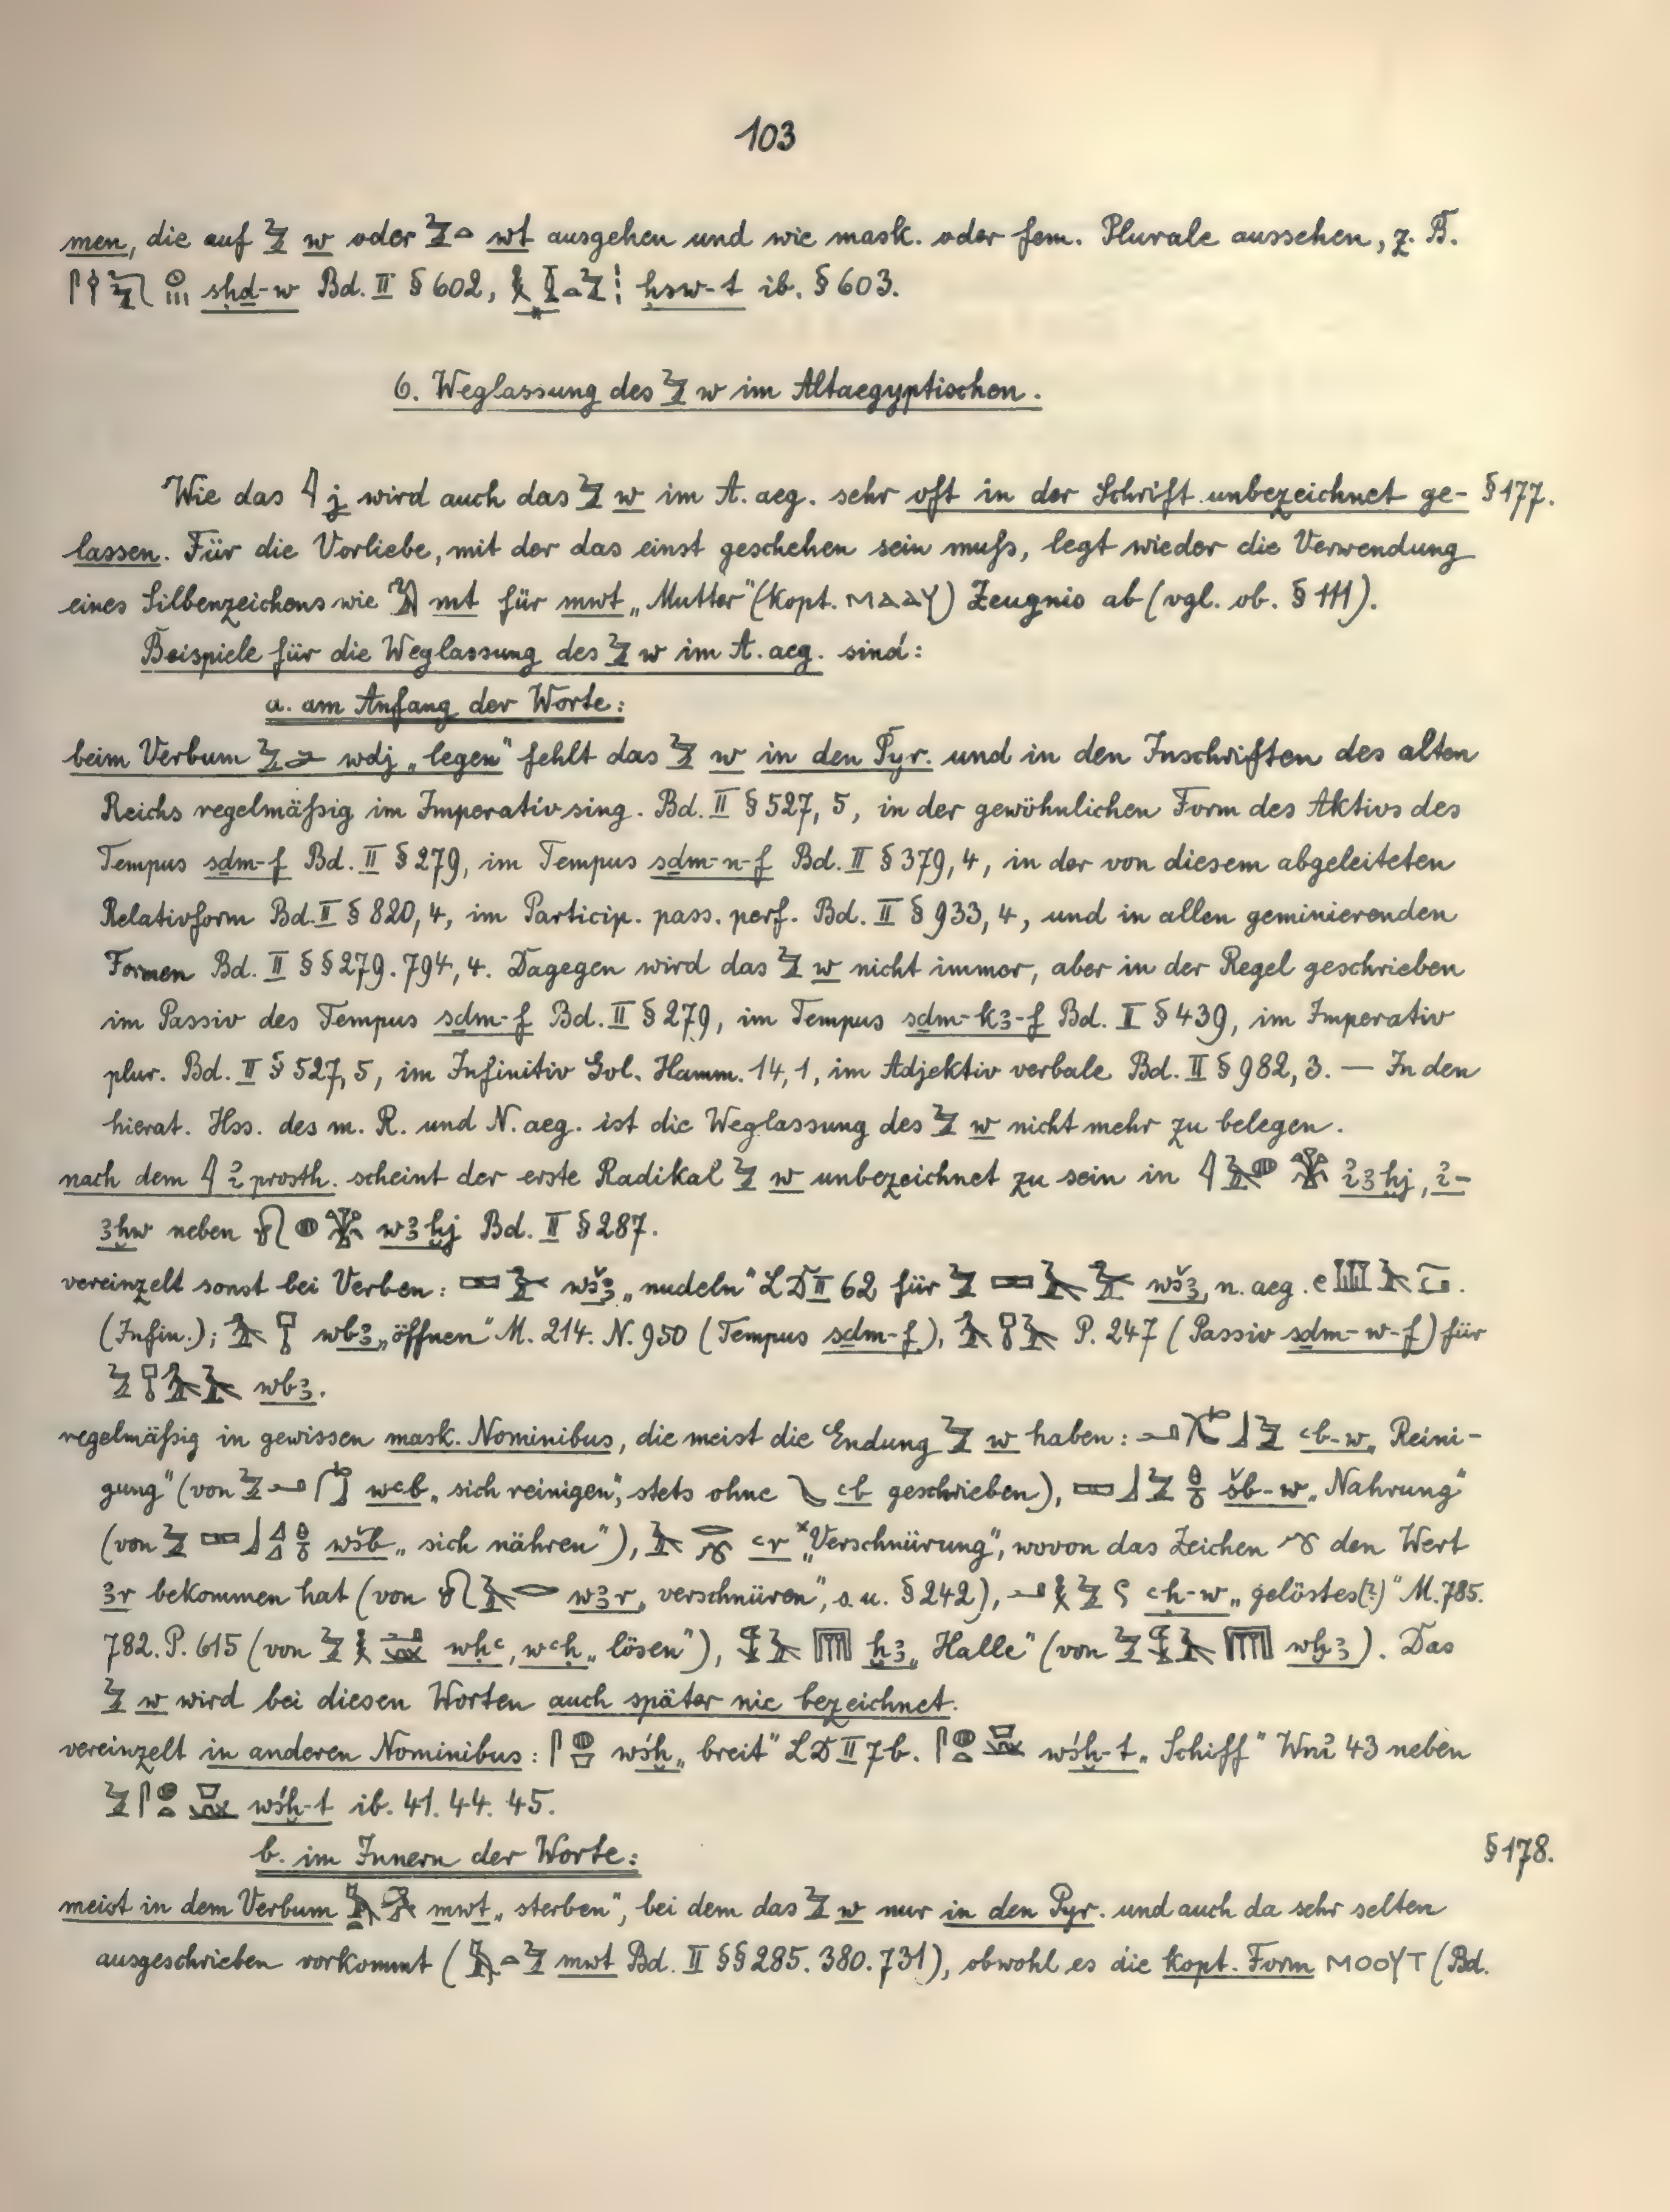 103
men, die auf 𓅱 w oder 𓅱𓏏 wt ausgehen und wie mask. oder fem. Plurale aussehen, z. B.
sḥḏ-w Bd. II § 602, ḥsw-t ib. § 603.
6. Weglassung des 𓅱 w im Altaegyptischen.
Wie das 𓇋 j wird auch das 𓅱 w im A. aeg. sehr oft in der Schrift unbezeichnet ge- § 177.
lassen. Für die Vorliebe, mit der das einst geschehen sein muß, legt wieder die Verwendung
eines Silbenzeichens wie 𓅐 mt für mwt „Mutter" (kopt. ⲙⲁⲁⲩ) Zeugnis ab (vgl. ob. § 111).
Beispiele für die Weglassung des 𓅱 w im A. aeg. sind:
a. am Anfang der Worte:
beim Verbum 𓅱 wdj „legen" fehlt das 𓅱 w in den Pyr. und in den Inschriften des alten
Reichs regelmäßig im Imperativ sing. Bd. II § 527, 5, in der gewöhnlichen Form des Aktivs des
Tempus sḏm-f Bd. II § 279, im Tempus sḏm-n-f Bd. II § 379, 4, in der von diesem abgeleiteten
Relativform Bd. II § 820, 4, im Particip. pass. perf. Bd. II § 933, 4, und in allen geminierenden
Formen Bd. II §§ 279. 794, 4. Dagegen wird das 𓅱 w nicht immer, aber in der Regel geschrieben
im Passiv des Tempus sḏm-f Bd. II § 279, im Tempus sḏm-k3-f Bd. II § 439, im Imperativ
plur. Bd. II § 527, 5, im Infinitiv Gol. Hamm. 14, 1, im Adjektiv verbale Bd. II § 982, 3. — In den
hierat. Hss. des m. R. und N. aeg. ist die Weglassung des 𓅱 w nicht mehr zu belegen.
nach dem 𓇋 i̓ prosth. scheint der erste Radikal 𓅱 w unbezeichnet zu sein in 𓇋𓄿𓐍 i̓3ḫj, i̓-
3ḫw neben 𓎝𓐍 w3ḫj Bd. II § 287.
vereinzelt sonst bei Verben: 𓈙 wš3 „nudeln" LD II 62 für 𓅱𓈙𓄿 wš3, n. aeg.
(Infin.); wb3 „öffnen" M. 214. N. 950 (Tempus sḏm-f), P. 247 (Passiv sḏm-w-f) für
wb3.
regelmäßig in gewissen mask. Nominibus, die meist die Endung 𓅱 w haben: ꜥb-w „Reini-
gung" (von wꜥb „sich reinigen", stets ohne ꜥb geschrieben), 𓈙𓃀𓅱 šb-w „Nahrung"
(von wšb „sich nähren"), ꜥr *„Verschnürung", wovon das Zeichen den Wert
3r bekommen hat (von 𓎝𓄿𓂋 w3r „verschnüren", s. u. § 242), 𓂝𓎛𓅱 ꜥḥ-w „gelöstes(?)" M. 785.
782. P. 615 (von wḥꜥ, wꜥḥ „lösen"), ḫ3 „Halle" (von wḫ3). Das
𓅱 w wird bei diesen Worten auch später nie bezeichnet.
vereinzelt in anderen Nominibus: wśḫ „breit" LD II 7b. wśḫ-t „Schiff" Wni̓ 43 neben
wśḫ-t ib. 41. 44. 45.
b. im Innern der Worte: § 178.
meist in dem Verbum mwt „sterben", bei dem das 𓅱 w nur in den Pyr. und auch da sehr selten
ausgeschrieben vorkommt (𓅓𓏏𓅱 mwt Bd. II §§ 285. 380. 731), obwohl es die kopt. Form ⲙⲟⲟⲩⲧ (Bd.